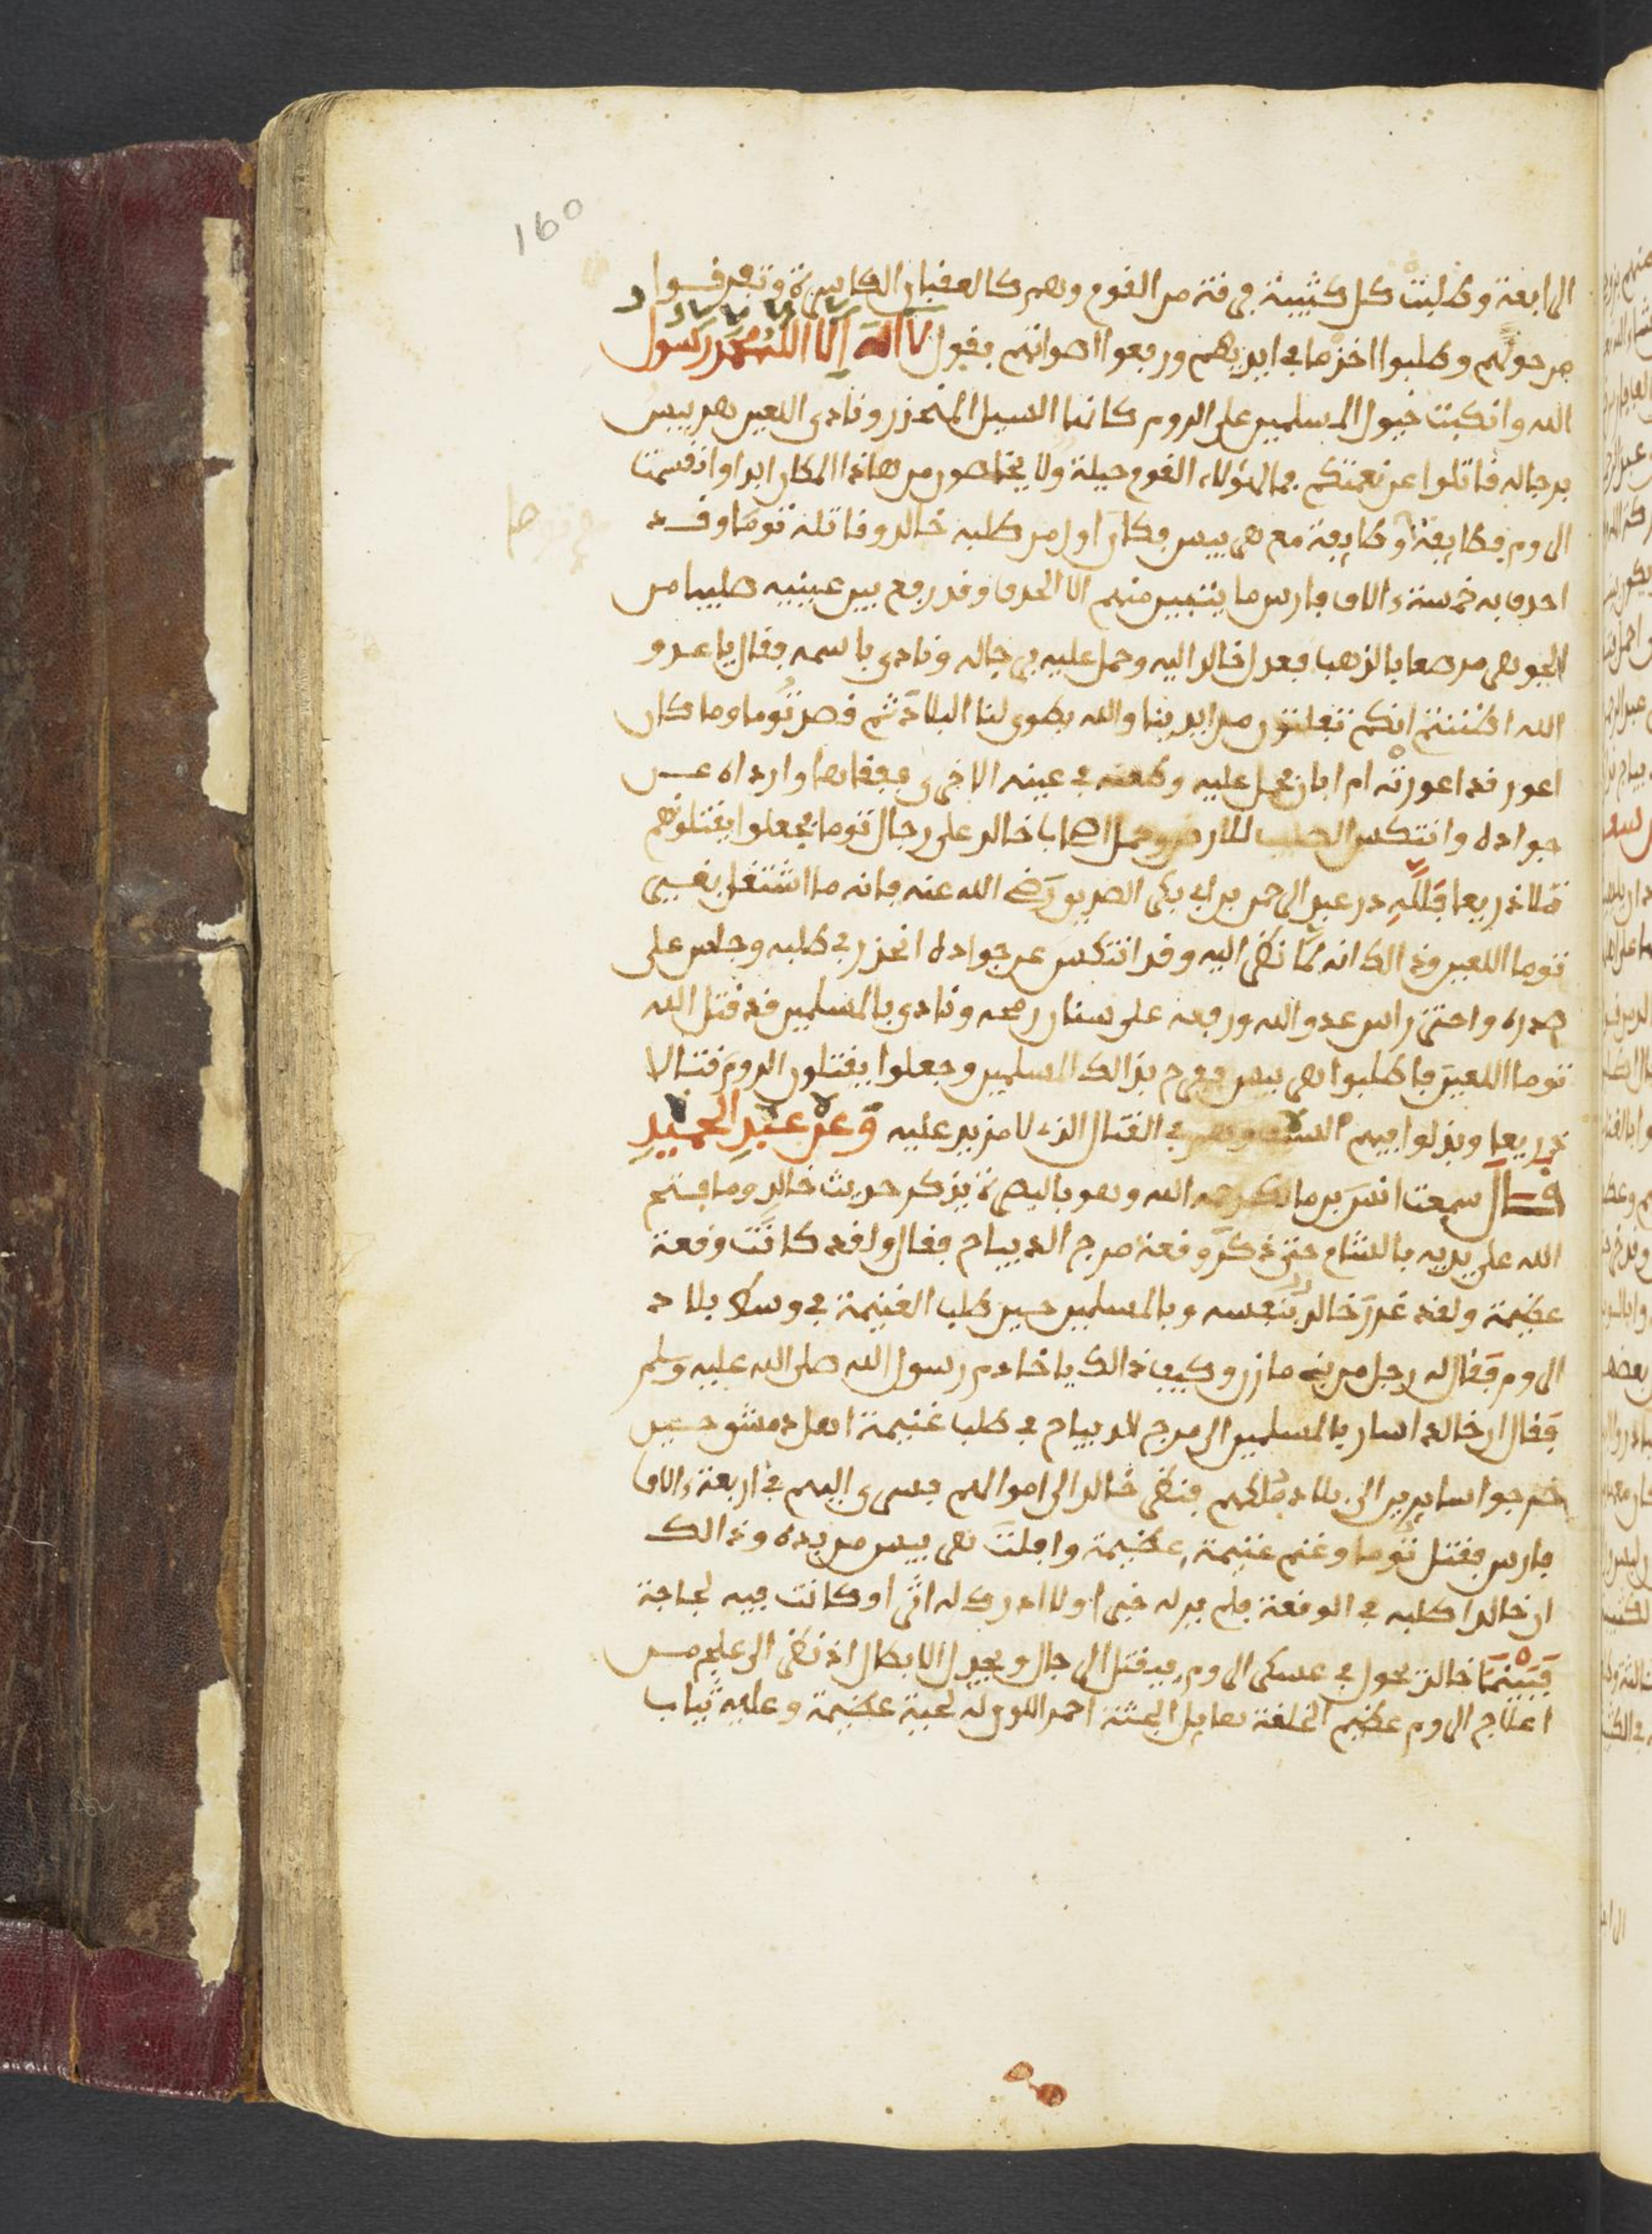 160
الرابعة وطلبت كل كتيبة فرقة من القوم وهم كالعقبان الكاسرة وتفرقوا
من حولهم وطلبوا اخذ ما في ايديهم ورفعوا اصواتهم بقول لا اله الا الله محمد رسول
الله وانكبت خيول المسلمين على الروم كانها السيل المنحدر ونادى اللعين هربيس
برجاله قاتلوا عن نعمتكم فما لهؤلاء القوم حيلة ولا يخلصون من هاذا المكان ابدا وانقسمت
الروم فطايفة وطايفة مع هربيس فكان اول من طلبه خالد وقاتله توما وقد
احدق به خمسة ءالاف فارس ما يتبين منهم الا الحدق وقد رفع بين عينيه صليبا من
الجوهر مرصعا بالذهب فعدل خالد اليه وحمل عليه في رجاله ونادى باسمه فقال يا عدو
الله اظننتم انكم تفلتون من ايدينا والله يطوى لنا البلاد ثم قصد توما وما كان
اعور قد اعورته ام ابان فحمل عليه وطعنه في عينه الاخرى ففقاها وارداه عن
جواده وانتكس الصليب للارض وحمل اصحاب خالد على رجال توما فجعلوا يقتلونهم
قتلا ذريعا فلله در عبد الرحمن بن ابي بكر الصديق رضي الله عنه فانه ما اشتغل بغير
توما اللعين وذالك انه لما نظر اليه وقد انتكس عن جواده انحدر في طلبه وجلس على
صدره واحتز راس عدو الله ورفعه على سنان رمحه ونادى بالمسلمين قد قتل الله
توما اللعين فاطلبوا هربيس ففرح بذالك المسلمين وجعلوا يقتلون الروم قتالا
ذريعا وبذلوا فيهم السيف وهم في القتال الذي لا مزيد عليه وعن عبد الحميد
قال سمعت انس بن مالك رحمه الله وهو بالبصرة يذكر حديث خالد وما فتح
الله على يديه بالشام حتى ذكر وقعة مرج الديباج فقال ولقد كانت وقعة
عظيمة ولقد غرر خالد بنفسه وبالمسلمين حين طلب الغنيمة في وسط بلاد
الروم فقال له رجل من بني مازن وكيف ذالك يا خادم رسول الله صلى الله عليه وسلم
فقال ان خالدا سار بالمسلمين الى مرج الديباج في طلب غنيمة اهل دمشق حين
خرجوا سايرين الى بلاد ملكهم فنظر خالد الى اموالهم فسرى اليهم في اربعة ءالاف
فارس فقتل توما وغنم غنيمة عظيمة وافلت هربيس من يده وذالك
ان خالدا طلبه في الوقعة فلم ير له خبرا ولا ادرك له اثرا وكانت فيه لجاجة
فبينما خالد يجول في عسكر الروم يقتل الرجال ويجدل الابطال اذ نظر الى علج من
اعلاج الروم عظيم الخلقة هايل الجثة احمر اللون له لحية عظيمة وعليه ثياب